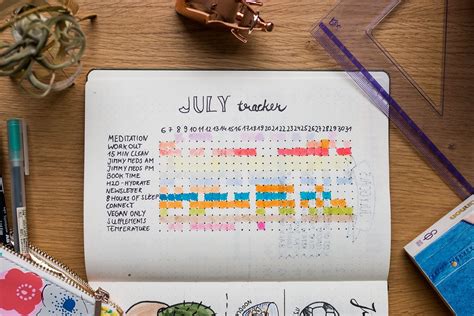 JULY tracker
6 7 8 9 10 11 12 13 14 15 16 17 18 19 20 21 22 23 24 25 26 27 28 29 30 31
MEDITATION
WORK OUT
15 MIN CLEAN
JIMMY MEDS AM
JIMMY MEDS PM
BOOK TIME
H2O-HYDRATE
NEWSLETTER
8 HOURS OF SLEEP
CONNECT
VEGAN ONLY
SUPPLEMENTS
TEMPERATURE